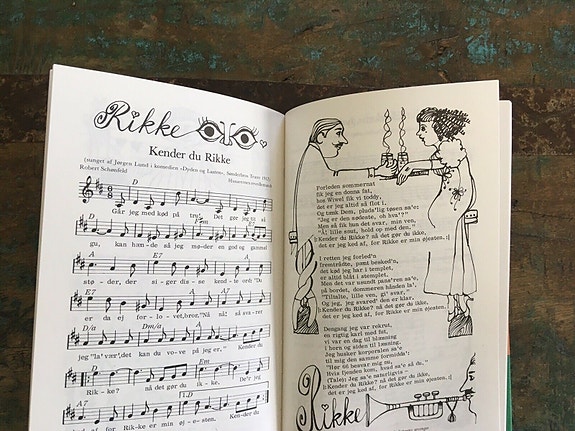 Rikke
Kender du Rikke
(sunget af Jørgen Lund i komedien «Dyden og Lasten», Sønderbros Teater 1912)
Robert Schønfeld
D
Går jeg med kød på tru', Det gør jeg al
D Em
gu, kan hænde så jeg møder en god og gammel
D E7 A
støder, der siger disse kendte ord: "Du
E7 D
er da ej forlovet, bror." Nå! nå! så svarer
D/a Dm/a A
jeg "la' vær', det kan du vove på jeg er." Kender du
D Em
Rikke? nå det gør du ikke, De'r jeg
A7 1.D
ked af for Rikke er min øjesten. Kender du
Forleden sommernat
fik jeg en donna fat,
hos Wivel fik vi toddy,
det er jeg altid så flot i,
Og tænk Dem, pluds'lig tøsen sa'e:
"Jeg er den sødeste, oh hva'?"
Men så fik hun det svar, min ven,
"Å! lille snut, hold op med den."
Kender du Rikke? nå det gør du ikke,
det er jeg ked af, for Rikke er min øjesten.
I retten jeg forled'n
fremstådte, pænt besked'n,
det kød jeg har i templet,
er altid blåt i stemplet,
Men det var usundt pans'ren sa'e,
på bordet, dommeren hånden la',
"Tiltalte, lille ven, gi' svar,"
Og jeg, jeg svared' den er klar.
Kender du Rikke? nå det gør du ikke,
det er jeg ked af, for Rikke er min øjesten.
Dengang jeg var rekrut,
en rigtig karl med fut,
vi var en dag til blæsning
i horn og siden til læsning.
Jeg husker korporalen sa'e
til mig den samme formidda':
"Hør til hosvar min,
Hvis fjenden kom, hvad sa'e så du."
(Tale): Jeg sa'e naturligvis –
Kender du Rikke? nå det gør du ikke,
det er jeg ked af, for Rikke er min øjesten.
Rikke